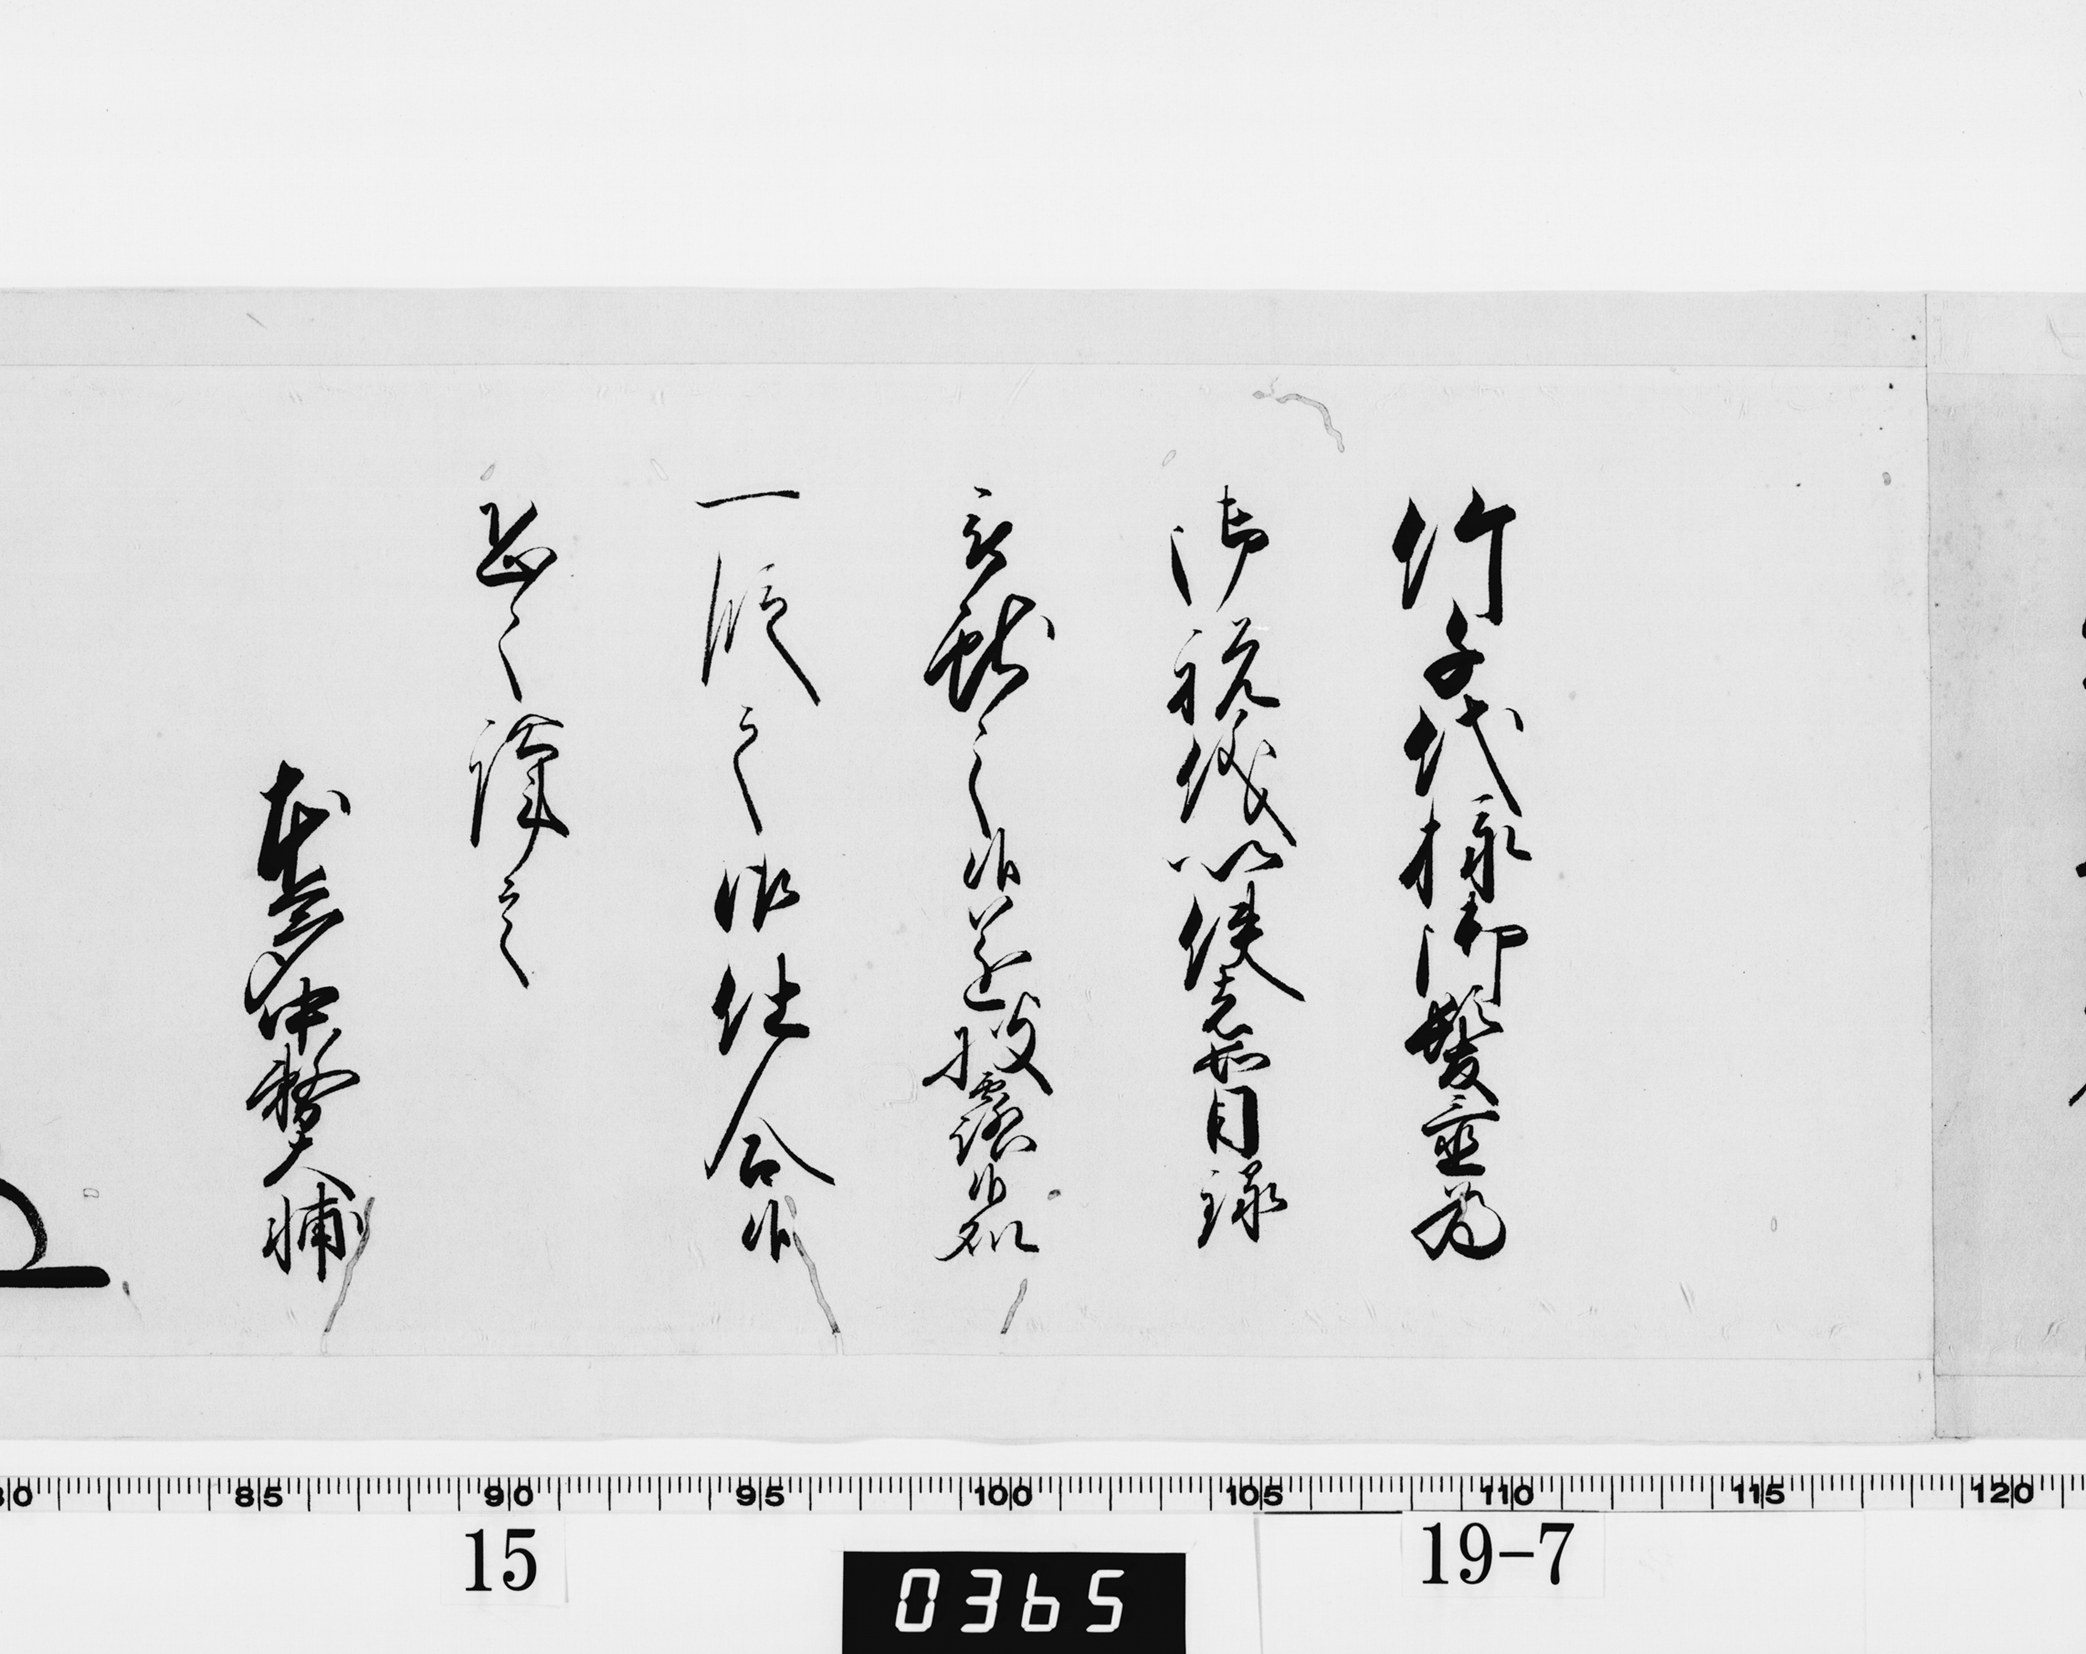 竹千代様御髪置為
御祝儀以使者如目録
言献之候遂披露候処
一段之御仕合候
恐々謹言
本多中務大輔
80 85 90 95 100 105 110 115 120
15
19-7
0365